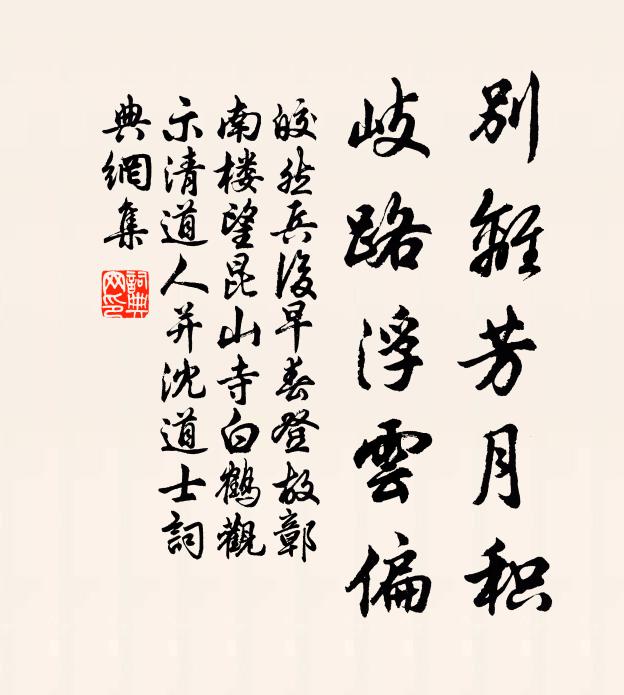 別離芳月积
岐路浮雲偏
皎然兵後早春登故鄣
南楼望昆山寺白鶴觀
示清道人并沈道士詞
典網集
詞典网印